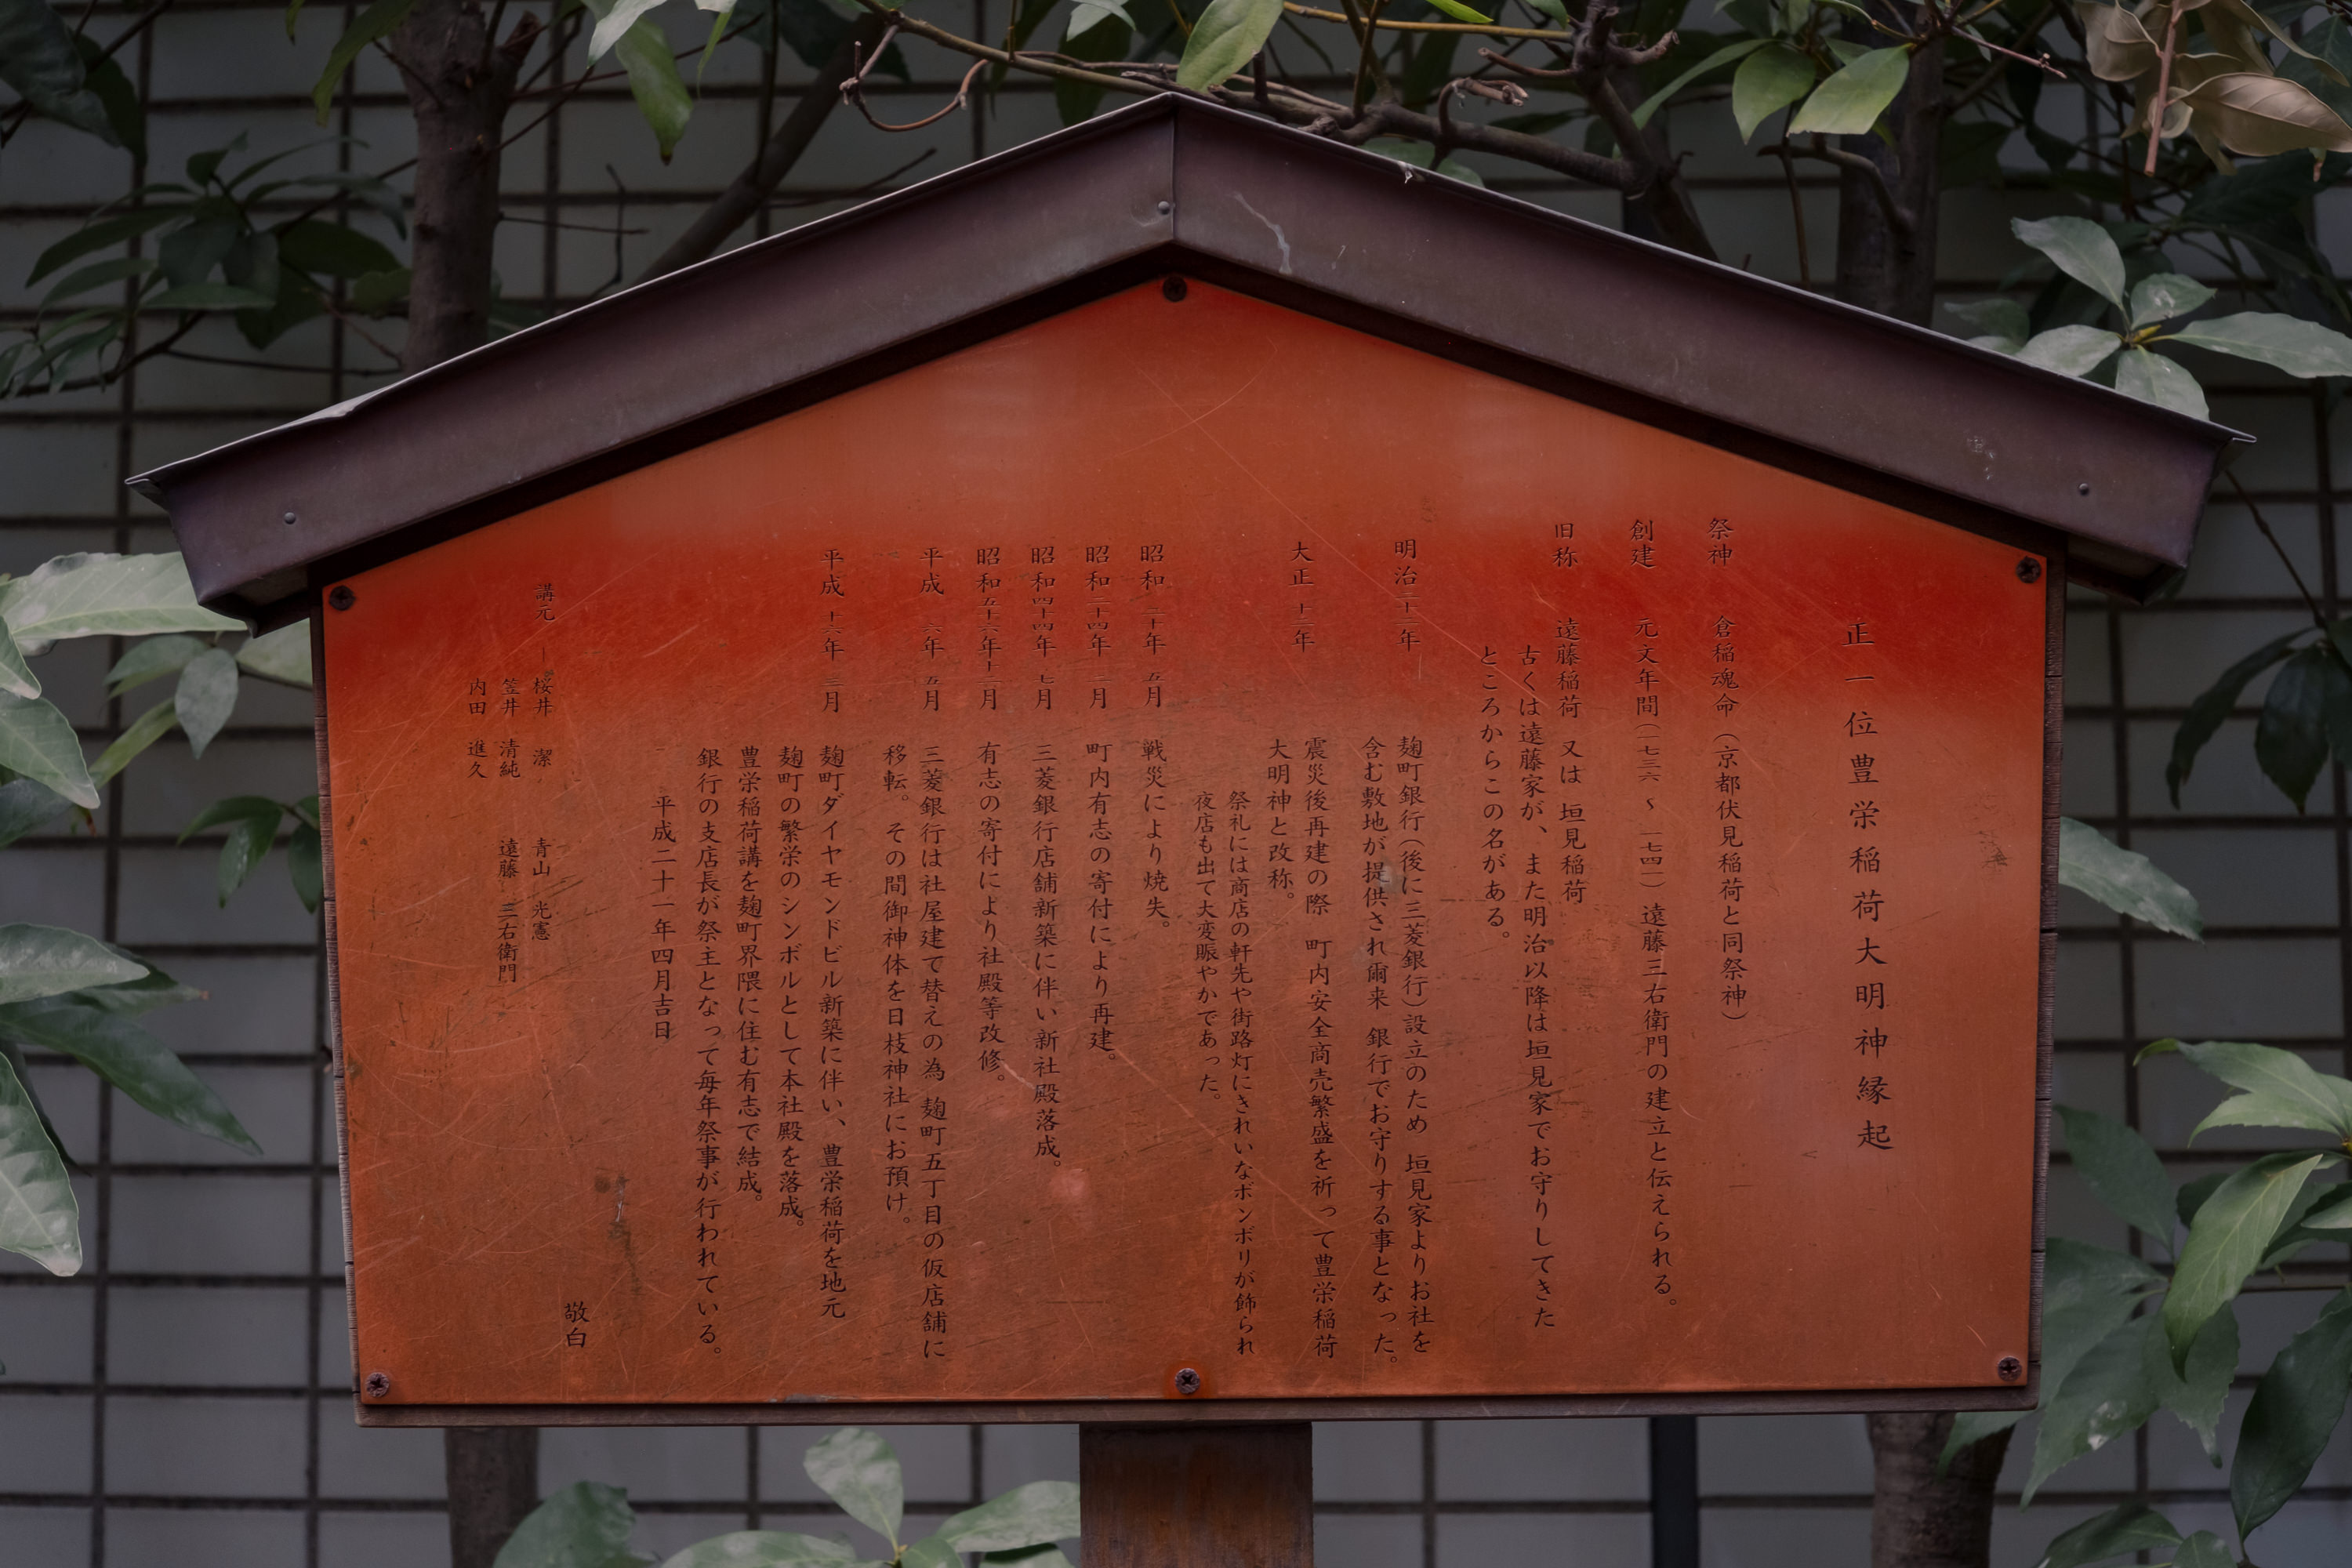 正一位豊栄稲荷大明神縁起
祭神 倉稲魂命(京都伏見稲荷と同祭神)
創建 元文年間(一七三六 ~ 一七四一)遠藤三右衛門の建立と伝えられる。
旧称 遠藤稲荷 又は 垣見稲荷
古くは遠藤家が、また明治以降は垣見家でお守りしてきた
ところからこの名がある。
明治二十二年 麹町銀行(後に三菱銀行)設立のため 垣見家よりお社を
含む敷地が提供され爾来 銀行でお守りする事となった。
大正 十二年 震災後再建の際 町内安全商売繁盛を祈って豊栄稲荷
大明神と改称。
祭礼には商店の軒先や街路灯にきれいなボンボリが飾られ
夜店も出て大変賑やかであった。
昭和 二十年 五月 戦災により焼失。
昭和二十四年 二月 町内有志の寄付により再建。
昭和四十四年 七月 三菱銀行店舗新築に伴い新社殿落成。
昭和五十六年十二月 有志の寄付により社殿等改修。
平成 六年 五月 三菱銀行は社屋建て替えの為 麹町五丁目の仮店舗に
移転。その間御神体を日枝神社にお預け。
平成 十六年 三月 麹町ダイヤモンドビル新築に伴い、豊栄稲荷を地元
麹町の繁栄のシンボルとして本社殿を落成。
豊栄稲荷講を麹町界隈に住む有志で結成。
銀行の支店長が祭主となって毎年祭事が行われている。
平成二十一年四月吉日
敬白
講元 桜井 潔 青山 光憲
笠井 清純 遠藤 三右衛門
内田 進久